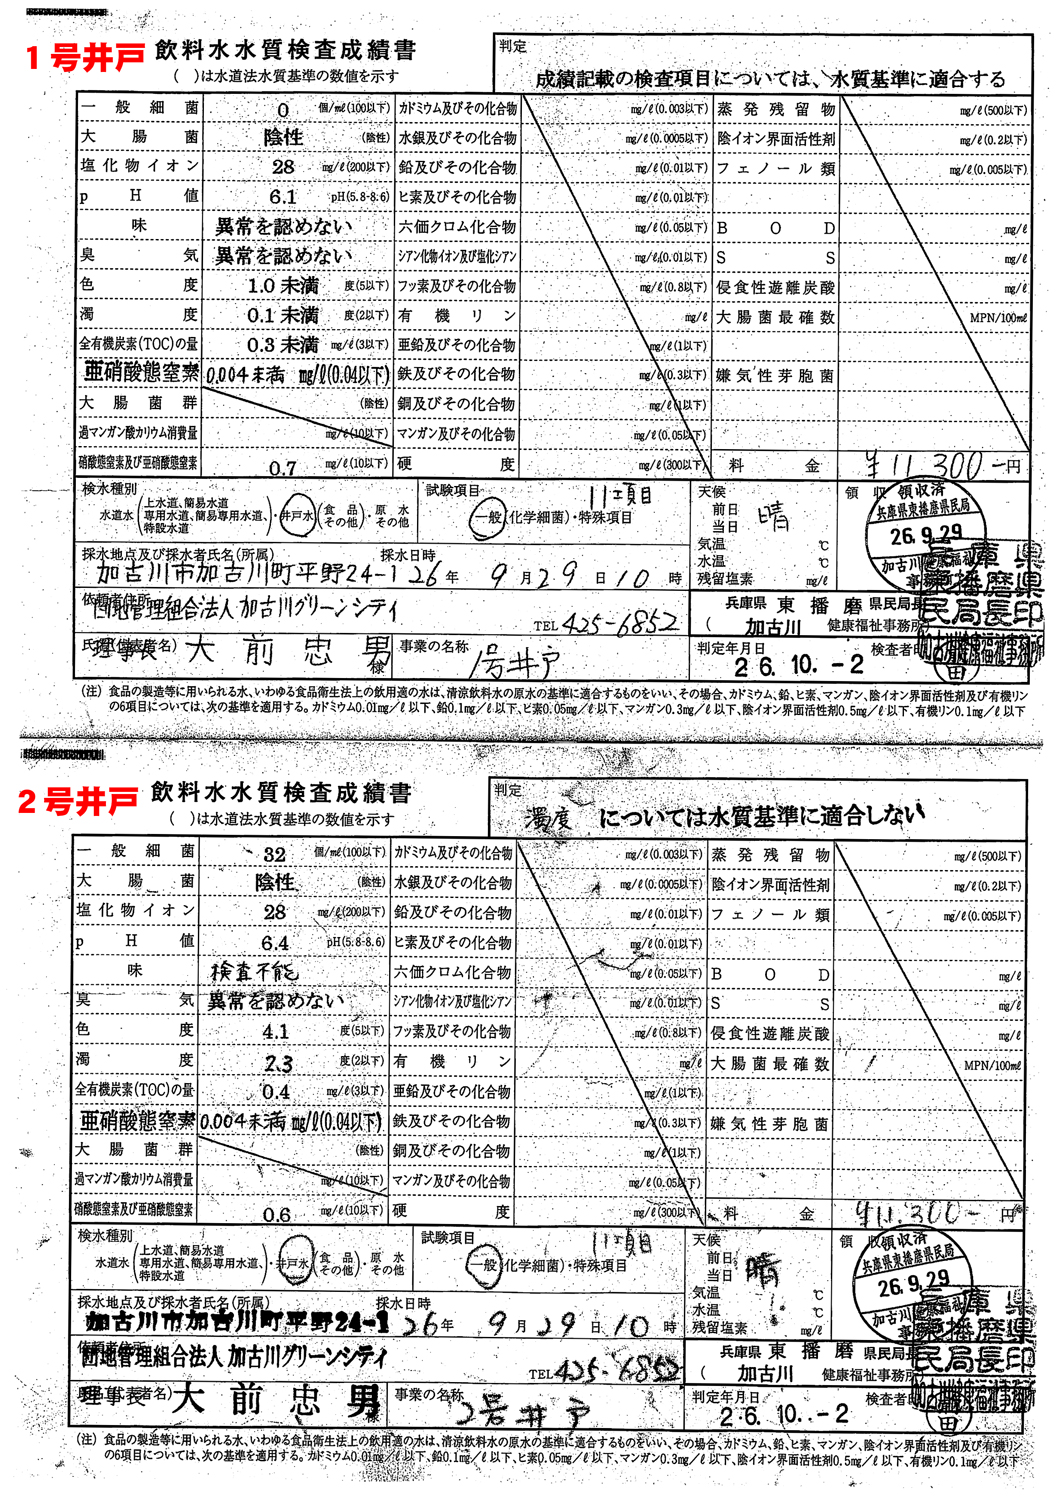 1号井戸 飲料水水質検査成績書
( )は水道法水質基準の数値を示す
判定
成績記載の検査項目については、水質基準に適合する
一般細菌 0 個/mℓ(100以下) カドミウム及びその化合物 mg/ℓ(0.003以下) 蒸発残留物 mg/ℓ(500以下)
大腸菌 陰性 (陰性) 水銀及びその化合物 mg/ℓ(0.0005以下) 陰イオン界面活性剤 mg/ℓ(0.2以下)
塩化物イオン 28 mg/ℓ(200以下) 鉛及びその化合物 mg/ℓ(0.01以下) フェノール類 mg/ℓ(0.005以下)
pH値 6.1 pH(5.8-8.6) ヒ素及びその化合物 mg/ℓ(0.01以下)
味 異常を認めない 六価クロム化合物 mg/ℓ(0.05以下) BOD mg/ℓ
臭気 異常を認めない シアン化物イオン及び塩化シアン mg/ℓ(0.01以下) SS mg/ℓ
色度 1.0未満 度(5以下) フッ素及びその化合物 mg/ℓ(0.8以下) 侵食性遊離炭酸 mg/ℓ
濁度 0.1未満 度(2以下) 有機リン mg/ℓ 大腸菌最確数 MPN/100mℓ
全有機炭素(TOC)の量 0.3未満 mg/ℓ(3以下) 亜鉛及びその化合物 mg/ℓ(1以下)
亜硝酸態窒素 0.004未満 mg/ℓ(0.04以下) 鉄及びその化合物 mg/ℓ(0.3以下) 嫌気性芽胞菌
大腸菌群 (陰性) 銅及びその化合物 mg/ℓ(1以下)
過マンガン酸カリウム消費量 mg/ℓ(10以下) マンガン及びその化合物 mg/ℓ(0.05以下)
硝酸態窒素及び亜硝酸態窒素 0.7 mg/ℓ(10以下) 硬度 mg/ℓ(300以下) 料金 ¥11,300-円
検水種別
水道水(上水道、簡易水道 専用水道、簡易専用水道、 特設水道)・井戸水(食品 その他)・原水 その他
試験項目 11項目
一般(化学細菌)・特殊項目
天候
前日
当日 晴
気温 ℃
水温 ℃
残留塩素 mg/ℓ
領収
領収済
兵庫県東播磨県民局
26.9.29
加古川健康福祉
事務所
採水地点及び採水者氏名(所属) 採水日時
加古川市加古川町平野24-1 26年 9月29日10時
依頼者住所
団地管理組合法人 加古川グリーンシティ
TEL 425-6852
兵庫県 東播磨 県民局長
( 加古川 健康福祉事務所)
兵庫県
東播磨県
民局長印
氏名(代表者名)
理事長 大前忠男 様
事業の名称 1号井戸
判定年月日 26.10.-2 検査者印
加古川健康福祉事務所
田
(注) 食品の製造等に用いられる水、いわゆる食品衛生法上の飲用適の水は、清涼飲料水の原水の基準に適合するものをいい、その場合、カドミウム、鉛、ヒ素、マンガン、陰イオン界面活性剤及び有機リン
の6項目については、次の基準を適用する。カドミウム0.01mg/ℓ以下、鉛0.1mg/ℓ以下、ヒ素0.05mg/ℓ以下、マンガン0.3mg/ℓ以下、陰イオン界面活性剤0.5mg/ℓ以下、有機リン0.1mg/ℓ以下
2号井戸 飲料水水質検査成績書
( )は水道法水質基準の数値を示す
判定
濁度 については水質基準に適合しない
一般細菌 32 個/mℓ(100以下) カドミウム及びその化合物 mg/ℓ(0.003以下) 蒸発残留物 mg/ℓ(500以下)
大腸菌 陰性 (陰性) 水銀及びその化合物 mg/ℓ(0.0005以下) 陰イオン界面活性剤 mg/ℓ(0.2以下)
塩化物イオン 28 mg/ℓ(200以下) 鉛及びその化合物 mg/ℓ(0.01以下) フェノール類 mg/ℓ(0.005以下)
pH値 6.4 pH(5.8-8.6) ヒ素及びその化合物 mg/ℓ(0.01以下)
味 検査不能 六価クロム化合物 mg/ℓ(0.05以下) BOD mg/ℓ
臭気 異常を認めない シアン化物イオン及び塩化シアン mg/ℓ(0.01以下) SS mg/ℓ
色度 4.1 度(5以下) フッ素及びその化合物 mg/ℓ(0.8以下) 侵食性遊離炭酸 mg/ℓ
濁度 2.3 度(2以下) 有機リン mg/ℓ 大腸菌最確数 MPN/100mℓ
全有機炭素(TOC)の量 0.4 mg/ℓ(3以下) 亜鉛及びその化合物 mg/ℓ(1以下)
亜硝酸態窒素 0.004未満 mg/ℓ(0.04以下) 鉄及びその化合物 mg/ℓ(0.3以下) 嫌気性芽胞菌
大腸菌群 (陰性) 銅及びその化合物 mg/ℓ(1以下)
過マンガン酸カリウム消費量 mg/ℓ(10以下) マンガン及びその化合物 mg/ℓ(0.05以下)
硝酸態窒素及び亜硝酸態窒素 0.6 mg/ℓ(10以下) 硬度 mg/ℓ(300以下) 料金 ¥11,300-円
検水種別
水道水(上水道、簡易水道 専用水道、簡易専用水道、 特設水道)・井戸水(食品 その他)・原水 その他
試験項目 11項目
一般(化学細菌)・特殊項目
天候
前日
当日 晴
気温 ℃
水温 ℃
残留塩素 mg/ℓ
領収
領収済
兵庫県東播磨県民局
26.9.29
加古川健康福祉
事務所
採水地点及び採水者氏名(所属) 採水日時
加古川市加古川町平野24-1 26年 9月29日10時
依頼者住所
団地管理組合法人 加古川グリーンシティ
TEL 425-6852
兵庫県 東播磨 県民局長
( 加古川 健康福祉事務所)
兵庫県
東播磨県
民局長印
氏名(代表者名)
理事長 大前忠男 様
事業の名称 2号井戸
判定年月日 26.10.-2 検査者印
加古川健康福祉事務所
田
(注) 食品の製造等に用いられる水、いわゆる食品衛生法上の飲用適の水は、清涼飲料水の原水の基準に適合するものをいい、その場合、カドミウム、鉛、ヒ素、マンガン、陰イオン界面活性剤及び有機リン
の6項目については、次の基準を適用する。カドミウム0.01mg/ℓ以下、鉛0.1mg/ℓ以下、ヒ素0.05mg/ℓ以下、マンガン0.3mg/ℓ以下、陰イオン界面活性剤0.5mg/ℓ以下、有機リン0.1mg/ℓ以下